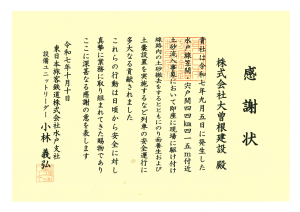 感謝状
株式会社大曽根建設 殿
貴社は令和七年九月五日に発生した
水戸線笠間・宍戸間四四k四一五m付近
土砂流入事象において即座に現場に駆け付け
線路内の土砂撤去をするとともにのり面養生および
土嚢設置を実施するなど列車の安全運行に
多大なる貢献されました
これらの行動は日頃から安全に対し
真摯に業務に取り組まれてきた賜物であり
ここに深甚なる感謝の意を表します
令和七年十月十日
東日本旅客鉄道株式会社水戸支社
設備ユニットリーダー 小林義弘